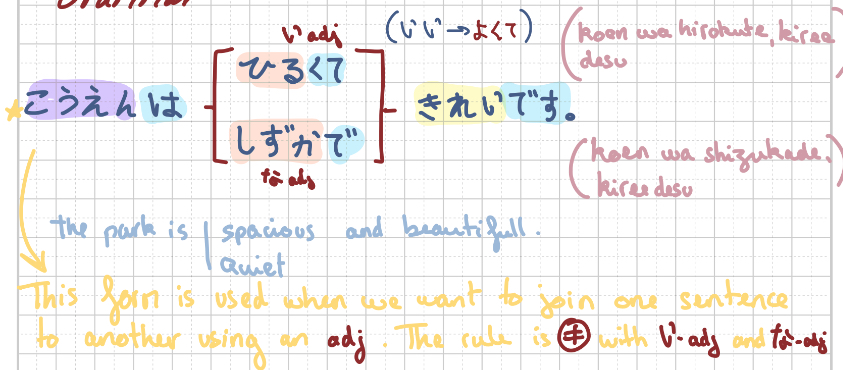 Grammar
い adj
(いい→よくて)
(koen wa hirokute, kiree
desu)
ひるくて
こうえんは
きれいです。
しずかで
な adj
(koen wa shizukade,
kiree desu)
the park is | spacious and beautifull.
quiet
This form is used when we want to join one sentence
to another using an adj. The rule is ≠ with い-adj and な-adj